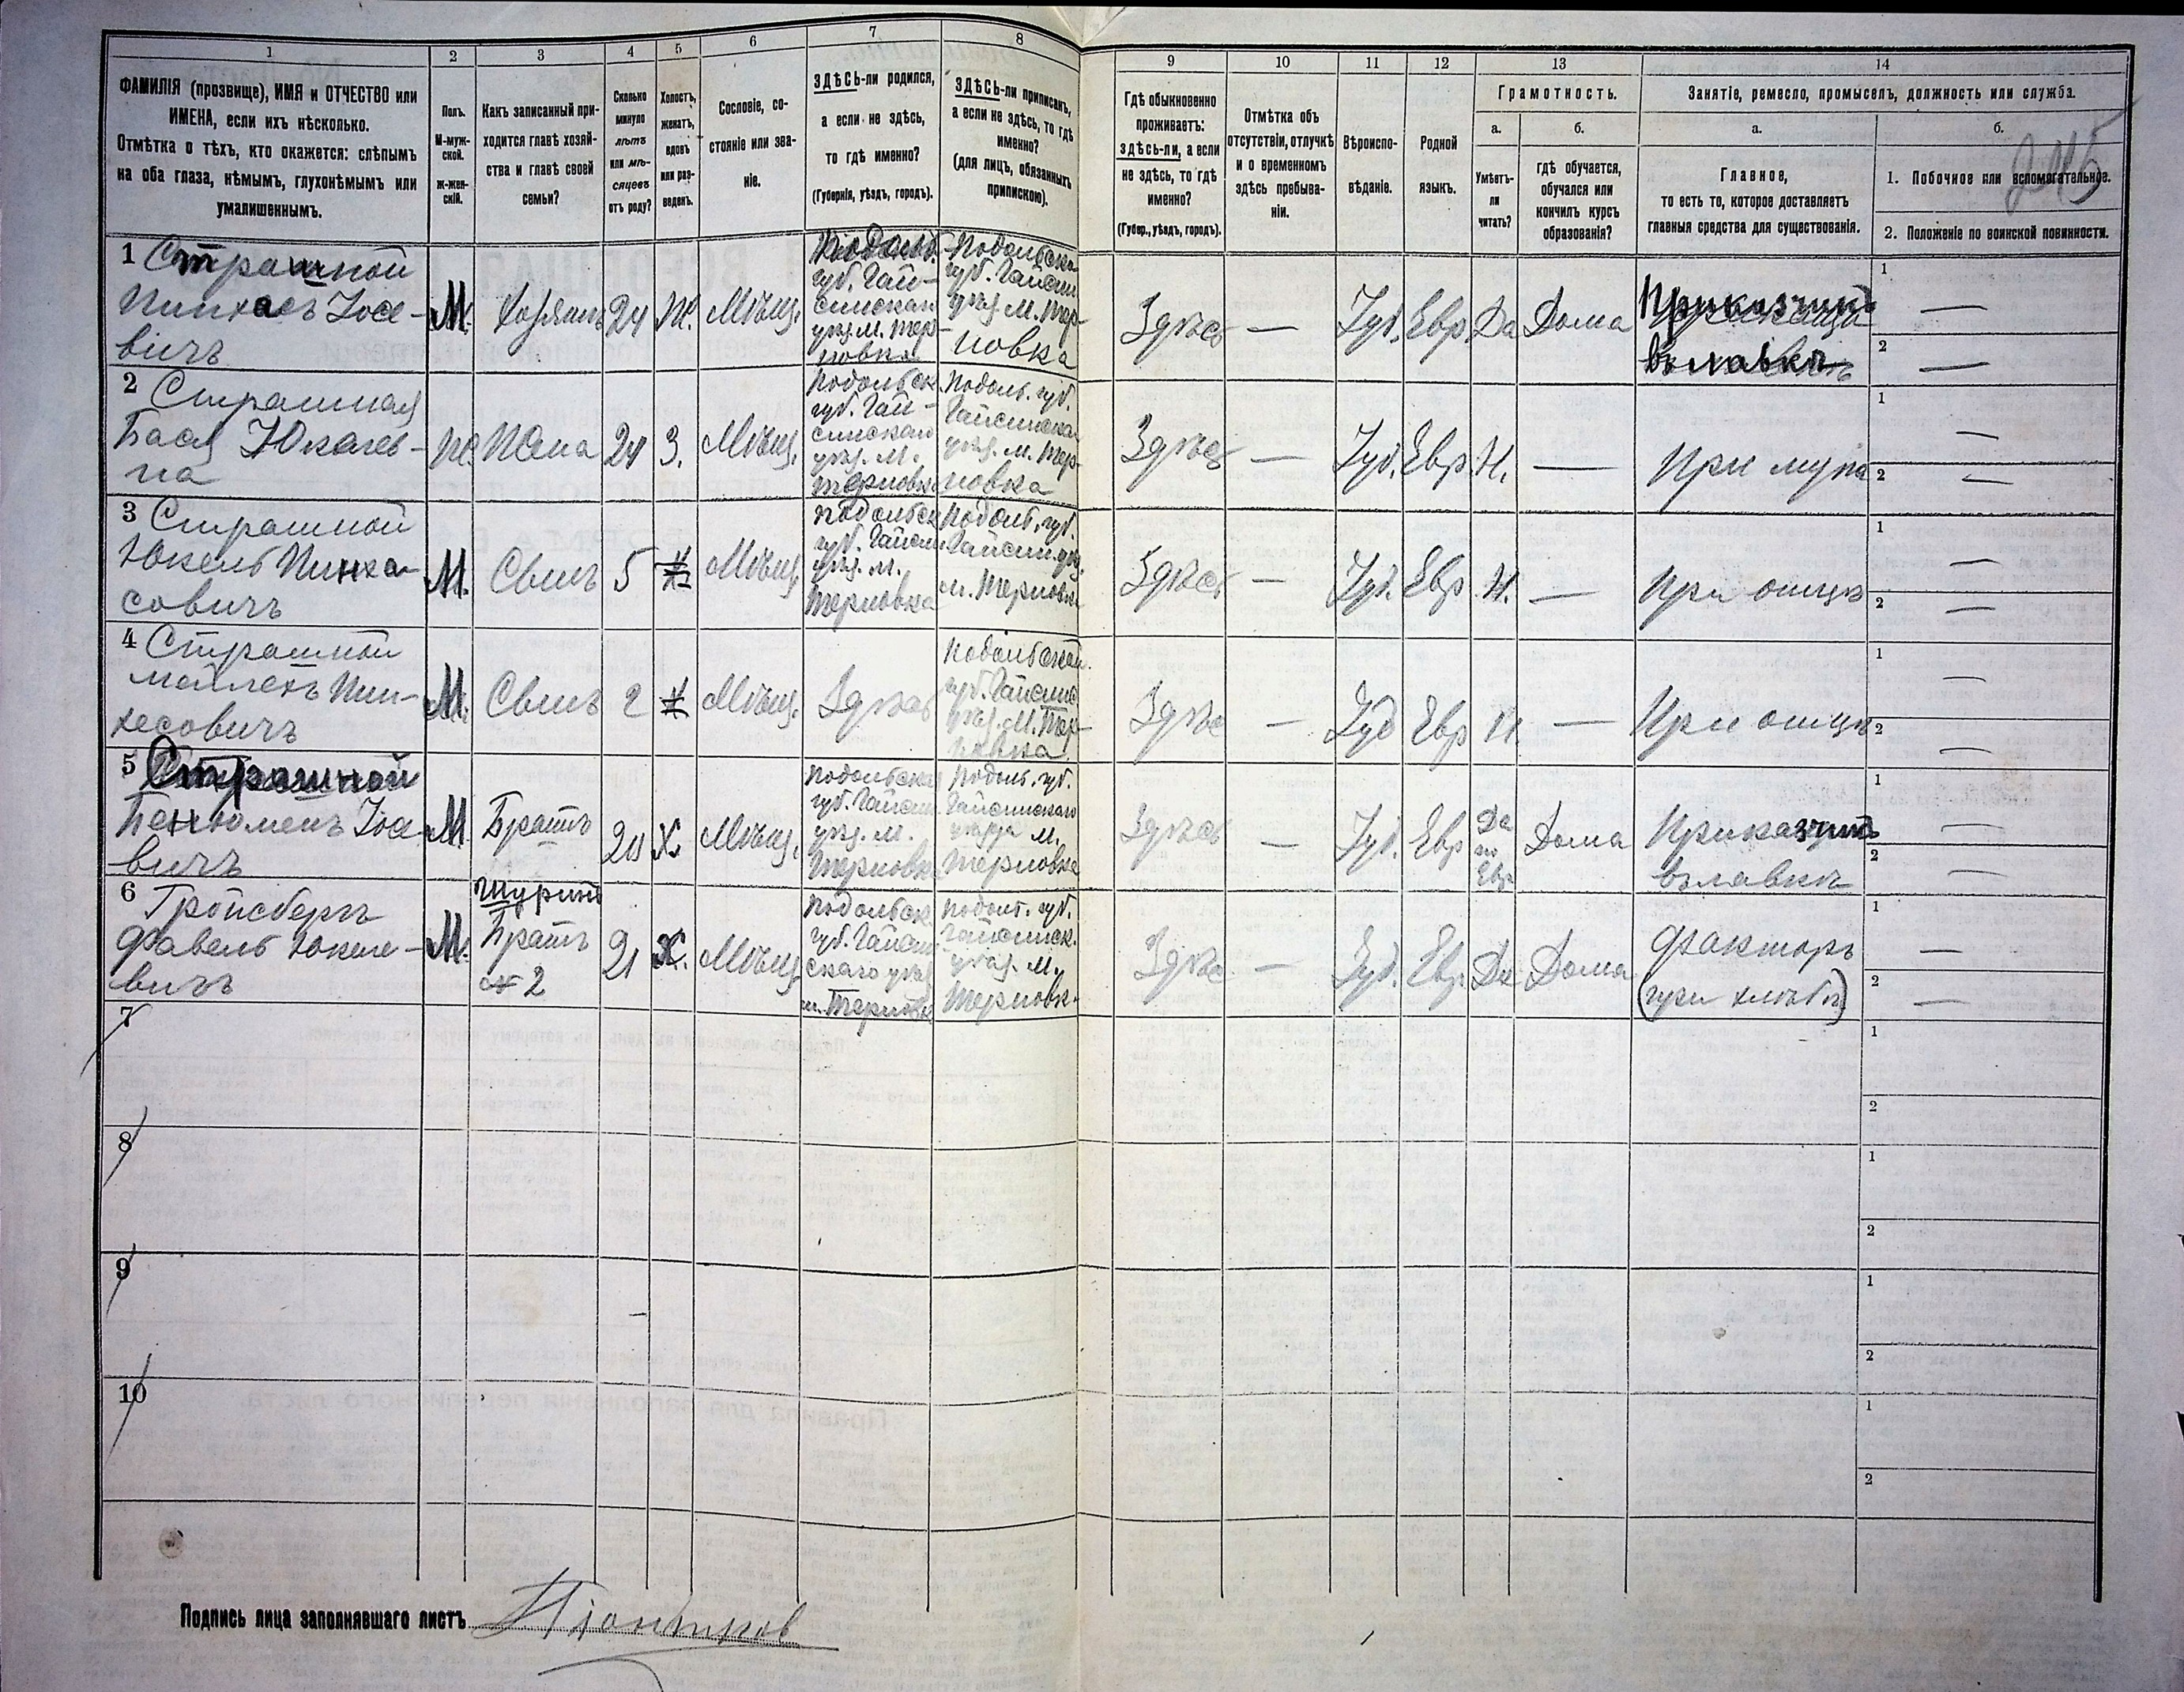 1
2
3
4
5
6
7
8
9
10
11
12
13
14
ФАМИЛІЯ (прозвище), ИМЯ и ОТЧЕСТВО или
ИМЕНА, если ихъ нѣсколько.
Отмѣтка о тѣхъ, кто окажется: слѣпымъ
на оба глаза, нѣмымъ, глухонѣмымъ или
умалишеннымъ.
Полъ.
М-муж-
ской.
ж-жен-
скій.
Какъ записанный при-
ходится главѣ хозяй-
ства и главѣ своей
семьи?
Сколько
минуло
лѣтъ
или мѣ-
сяцевъ
отъ роду?
Холостъ,
женатъ,
вдовъ
или раз-
веденъ.
Сословіе, со-
стояніе или зва-
ніе.
ЗДѢСЬ-ли родился,
а если не здѣсь,
то гдѣ именно?
(Губернія, уѣздъ, городъ).
ЗДѢСЬ-ли приписанъ,
а если не здѣсь, то гдѣ
именно?
(для лицъ, обязанныхъ
припискою).
Гдѣ обыкновенно
проживаетъ:
здѣсь-ли, а если
не здѣсь, то гдѣ
именно?
(Губер., уѣздъ, городъ).
Отмѣтка объ
отсутствіи, отлучкѣ
и о временномъ
здѣсь пребыва-
ніи.
Вѣроиспо-
вѣданіе.
Родной
языкъ.
Грамотность.
а.
б.
Умѣетъ-
ли
читать?
гдѣ обучается,
обучался или
кончилъ курсъ
образованія?
Занятіе, ремесло, промыселъ, должность или служба.
а.
б.
Главное,
то есть то, которое доставляетъ
главныя средства для существованія.
1. Побочное или вспомогательное.
2. Положеніе по воинской повинности.
1 Страшной
Пинхасъ Іосе-
вичъ
М.
Хозяинъ
24
Ж.
Мѣщ.
губ. Гай-
синскаго
уѣз. м. Тер-
новка
Подольской
губ. Гайсин
уѣз. м. Тер-
новка
Здѣсь
—
Іуд.
Евр
Да
Дома
Приказчикъ
въ лавкѣ
1 —
2 —
2 Страшная
Бася Юкелев-
на
Ж.
Жена
24
З.
Мѣщ.
Подольск.
губ. Гай-
синскаго
уѣз. м.
Терновка
Подоль. губ.
Гайсинска
уѣз. м. Тер-
новка
Здѣсь
—
Іуд.
Евр.
Н.
—
При мужѣ
1 —
2 —
3 Страшной
Юкель Пинха-
совичъ
М.
Сынъ
5
Мѣщ.
Подольск
губ. Гайсин
уѣз. м.
Терновка
Подоль. губ.
Гайсин. уѣз.
м. Терновка
Здѣсь
—
Іуд.
Евр
Н.
—
При отцѣ
1 —
2 —
4 Страшной
Мейлехъ Пин-
хесовичъ
М.
Сынъ
2
Мѣщ.
Здѣсь
Подольской
губ. Гайсинс
уѣз. м. Тер-
новка
Здѣсь
—
Іуд
Евр
Н.
—
При отцѣ
1 —
2 —
5 Страшной
Бенюменъ Іосе-
вичъ
М
Братъ
20
Х.
Мѣщ.
Подольска
губ. Гайсин
уѣз. м.
Терновка
Подоль. губ.
Гайсинскаго
уѣзда м.
Терновка
Здѣсь
—
Іуд.
Евр
Да
по
Евр
Дома
Приказчикъ
въ лавкѣ
1 —
2 —
6 Гройсбергъ
Фавель Юкеле-
вичъ
М.
Шуринъ
Братъ
2
21
Х.
Мѣщ.
Подольск
губ. Гайсин
скаго уѣз
м. Терновка
Подол. губ.
Гайсинск.
уѣз. м.
Терновк.
Здѣсь
—
Іуд.
Евр.
Да
Дома
Факторъ
(при хлѣбѣ)
1 —
2 —
7
1
2
8
1
2
9
1
2
10
1
2
Подпись лица заполнявшаго листъ